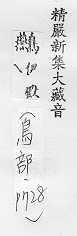 精嚴新集大藏音
伊
(鳥部, 1728)